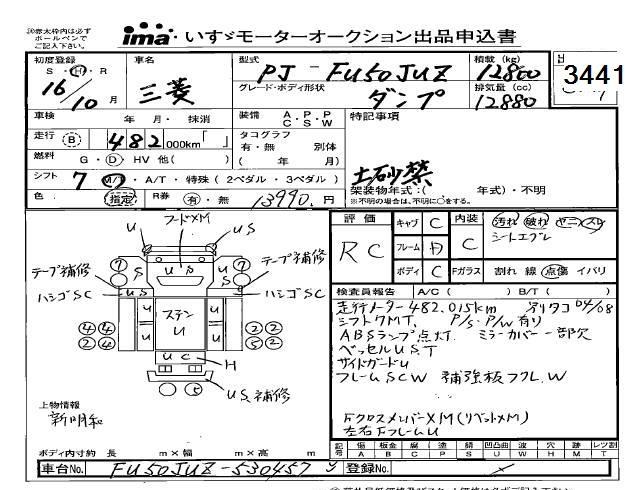 ※赤太枠内は必ず
ボールペンで
ご記入下さい。
ima いすゞモーターオークション出品申込書
初度登録 S・H・R 16/10 月
車名 三菱
型式 PJ-FU50JUZ
積載 (kg) 12800
3441
グレード・ボディ形状 ダンプ
排気量 (cc) 12880
車検 年 月・ 抹消
装備 A.C P.S P.W
特記事項
走行 B 482,000km「 」
タコグラフ 有・無 別体
燃料 G・D・HV 他( )
( 年 月)
土砂禁
シフト 7 M/T・A/T・特殊(2ペダル・3ペダル)
架装物年式:( 年式)・不明
※不明の場合は、不明に○をする。
色 指定 R券 有・無 13990 円
評価 RC
キャブ C
フレーム
ボディ C
内装 C
Fガラス
汚れ 破れ ヤニ・スレ
シートエグレ
割れ 線 点傷 イバリ
フードXM
U
US
⑦
テープ補修
ハシゴSC
US
ステン
U
④④
②④
②②
⑤②
UC
H
US補修
検査員報告 A/C( ) B/T( )
走行メーター482,015km
シフト7MT、P/S・P/W有り
ABSランプ点灯 ミラーカバー一部欠
ベッセルUST
サイドガードU
フレームSCW 補強板フクレ.W
FクロスメンバーXM(リベットXM)
左右FフレームU
上物情報
新明和
ボディ内寸約 長 m×幅 m×高 m
記号 傷A 板金B 腐C 塗P 錆S 凹凸曲U 波W 穴H 跡M レツ割T
車台No. FU50JUZ-530457
登録No.